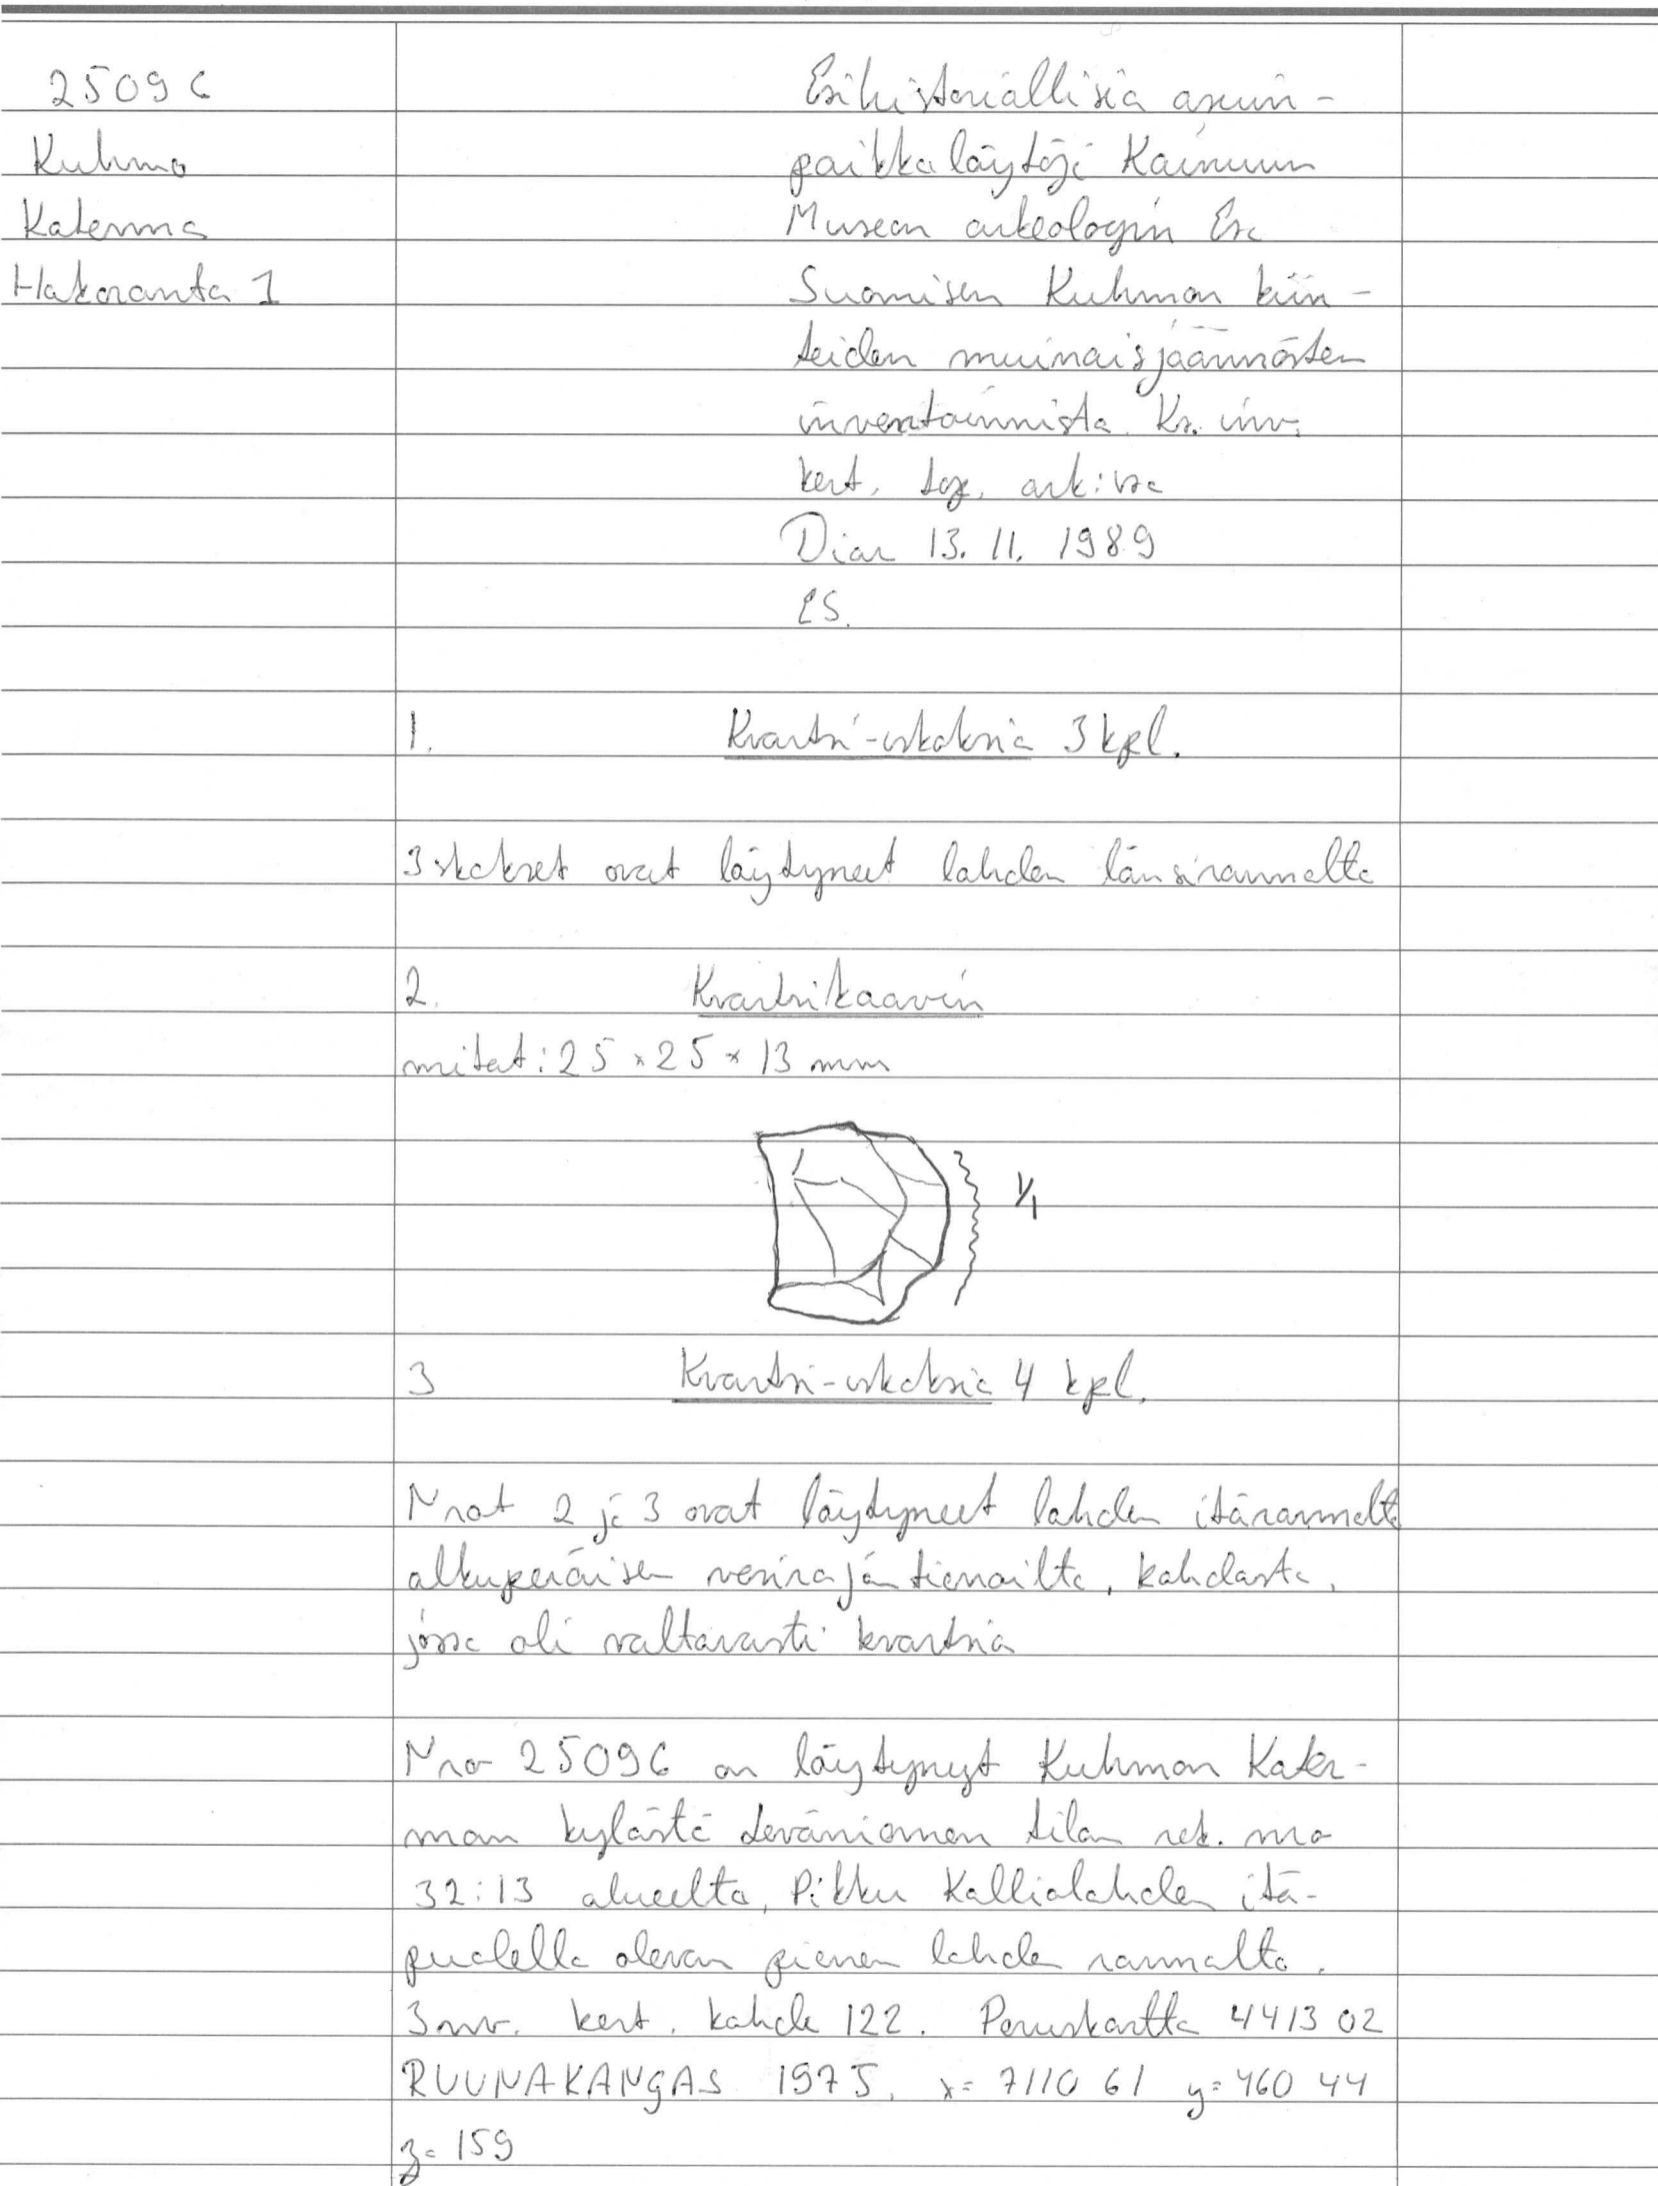 25096
Kuhmo
Katerma
Hakoranta 1
Esihistoriallisia asuin-
paikkalöytöjä Kainuun
Museon arkeologin Esa
Suomisen Kuhmon kiin-
teiden muinaisjäännösten
inventoinnista. Ks. inv.
kert. top. ark:ssa
Diar 13.11. 1989
ES.
1. Kvartsi-iskoksia 3 kpl.
Iskokset ovat löytyneet lahden länsirannalta
2. Kvartsikaavin
mitat: 25 x 25 x 13 mm
1/1
3 Kvartsi-iskoksia 4 kpl.
Nrot 2 ja 3 ovat löytyneet lahden itärannalta
alkuperäisen vesirajan tienoilta, kohdasta,
jossa oli valtavasti kvartsia
Nro 25096 on löytynyt Kuhmon Kater-
man kylästä Teräniemen tilan rek. nro
32:13 alueelta, Pikku Kalliolahden itä-
puolella olevan pienen lahden rannalta.
Inv. kert. kohde 122. Peruskartta 4413 02
RUUNAKANGAS 1975. x= 7110 61 y= 460 44
z= 159